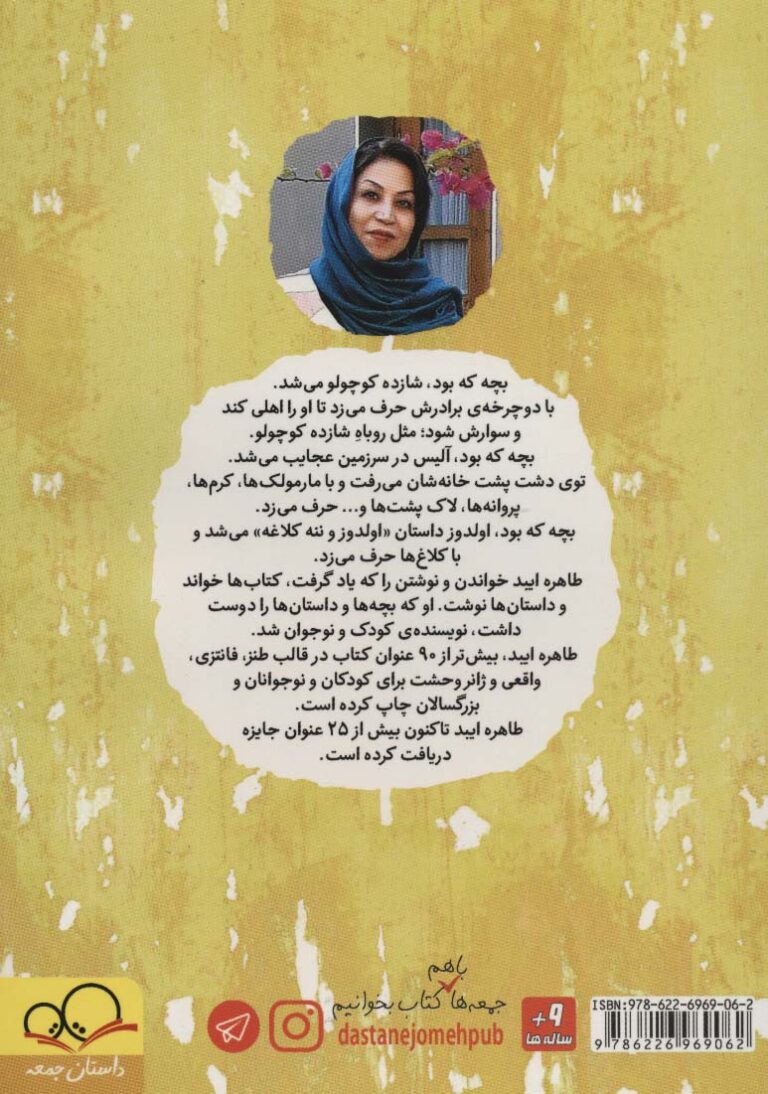 بچه که بود، شازده کوچولو می‌شد.
با دوچرخه‌ی برادرش حرف می‌زد تا او را اهلی کند
و سوارش شود؛ مثل روباهِ شازده کوچولو.
بچه که بود، آلیس در سرزمین عجایب می‌شد.
توی دشت پشت خانه‌شان می‌رفت و با مارمولک‌ها، کرم‌ها،
پروانه‌ها، لاک پشت‌ها و... حرف می‌زد.
بچه که بود، اولدوز داستان «اولدوز و ننه کلاغه» می‌شد و
با کلاغ‌ها حرف می‌زد.
طاهره ایبد خواندن و نوشتن را که یاد گرفت، کتاب‌ها خواند
و داستان‌ها نوشت. او که بچه‌ها و داستان‌ها را دوست
داشت، نویسنده‌ی کودک و نوجوان شد.
طاهره ایبد، بیش‌تر از ۹۰ عنوان کتاب در قالب طنز، فانتزی،
واقعی و ژانر وحشت برای کودکان و نوجوانان و
بزرگسالان چاپ کرده است.
طاهره ایبد تاکنون بیش از ۲۵ عنوان جایزه
دریافت کرده است.
باهم
جمعه‌ها کتاب بخوانیم
dastanejomehpub
+۹
ساله‌ها
ISBN:978-622-6969-06-2
9 786226 969062
داستان جمعه